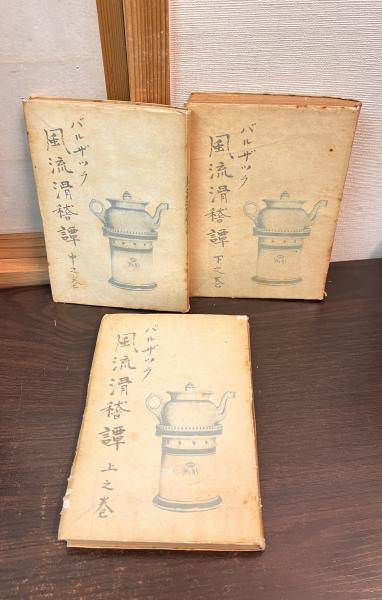 バルザック
風流滑稽譚
中之巻
バルザック
風流滑稽譚
下之巻
バルザック
風流滑稽譚
上之巻